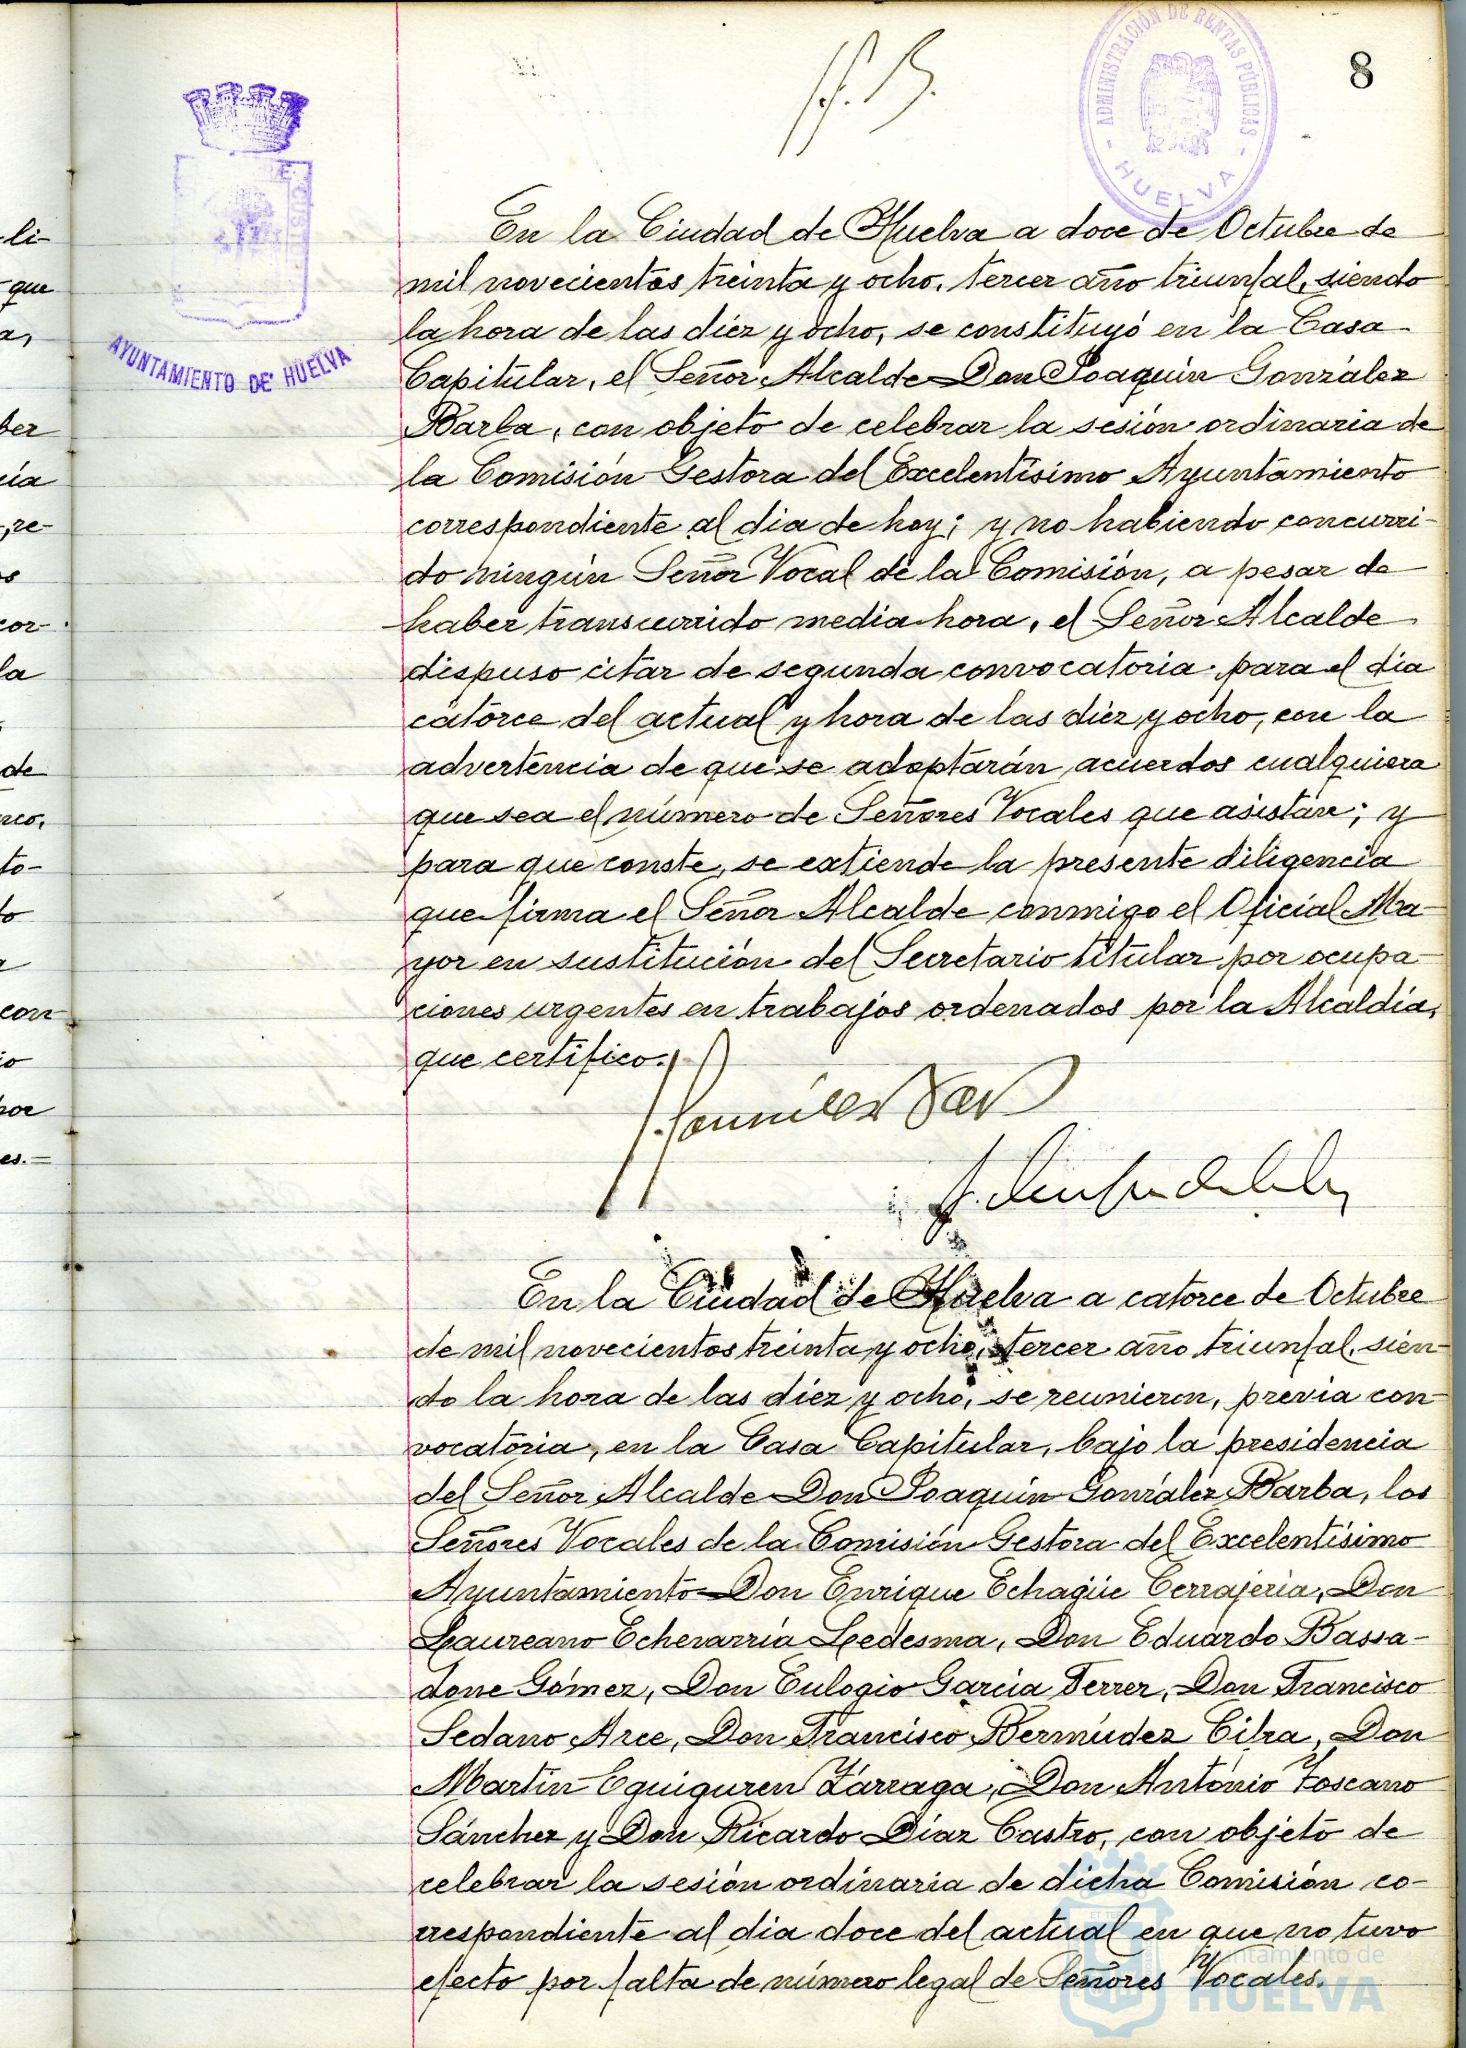 8
ADMINISTRACIÓN DE RENTAS PÚBLICAS
- HUELVA -
AYUNTAMIENTO DE HUELVA
En la Ciudad de Huelva a doce de Octubre de
mil novecientos treinta y ocho, tercer año triunfal, siendo
la hora de las diez y ocho, se constituyó en la Casa
Capitular, el Señor Alcalde Don Joaquín González
Barba, con objeto de celebrar la sesión ordinaria de
la Comisión Gestora del Excelentísimo Ayuntamiento
correspondiente al dia de hoy; y no habiendo concurri-
do ningún Señor Vocal de la Comisión, a pesar de
haber transcurrido media hora, el Señor Alcalde
dispuso citar de segunda convocatoria para el dia
catorce del actual y hora de las diez y ocho, con la
advertencia de que se adoptarán acuerdos cualquiera
que sea el número de Señores Vocales que asistan; y
para que conste, se extiende la presente diligencia
que firma el Señor Alcalde conmigo el Oficial Ma-
yor en sustitución del Secretario titular por ocupa-
ciones urgentes en trabajos ordenados por la Alcaldía,
que certifico.
En la Ciudad de Huelva a catorce de Octubre
de mil novecientos treinta y ocho, tercer año triunfal, sien-
do la hora de las diez y ocho, se reunieron, previa con-
vocatoria, en la Casa Capitular, bajo la presidencia
del Señor Alcalde Don Joaquín González Barba, los
Señores Vocales de la Comisión Gestora del Excelentísimo
Ayuntamiento Don Enrique Echagüe Cerrajería, Don
Laureano Echevarría Ledesma, Don Eduardo Bassa-
done Gómez, Don Eulogio García Ferrer, Don Francisco
Sedano Arce, Don Francisco Bermúdez Cilra, Don
Martín Eguiguren Zárraga, Don António Toscano
Sánchez y Don Ricardo Díaz Castro, con objeto de
celebrar la sesión ordinaria de dicha Comisión co-
rrespondiente al dia doce del actual en que no tuvo
efecto por falta de número legal de Señores Vocales.
Ayuntamiento de
HUELVA